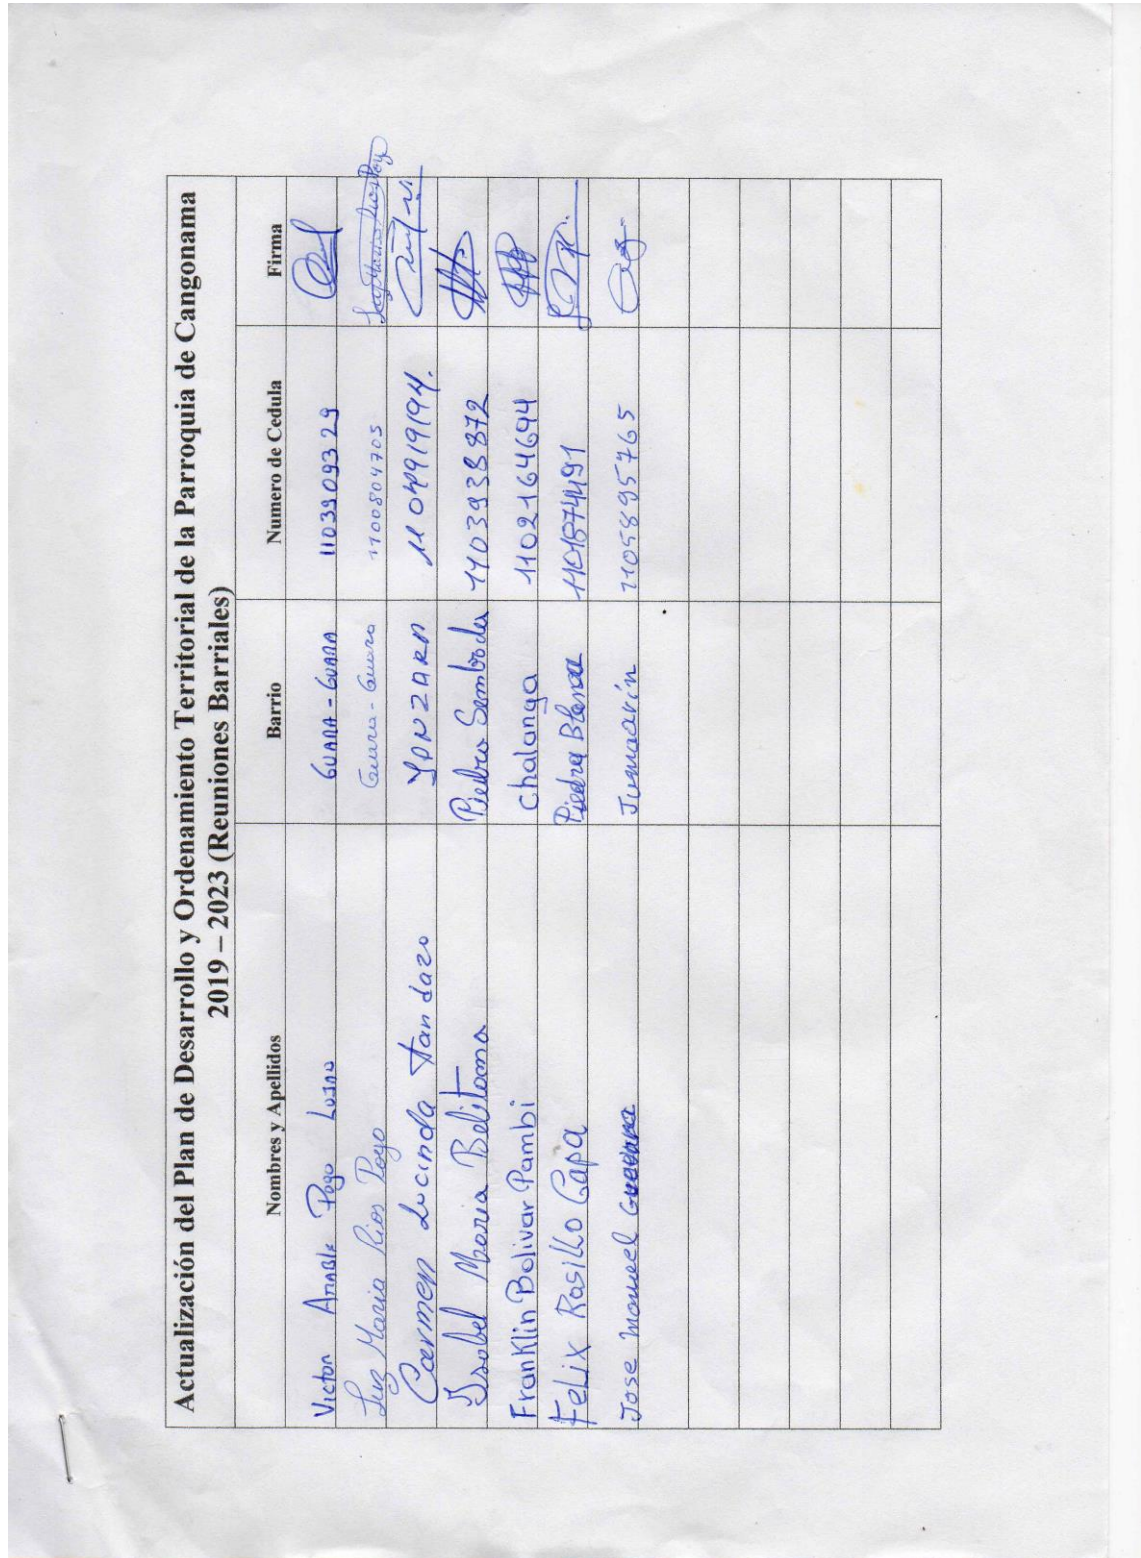 Actualización del Plan de Desarrollo y Ordenamiento Territorial de la Parroquia de Cangonama
2019 – 2023 (Reuniones Barriales)
Nombres y Apellidos Barrio Numero de Cedula Firma
Victor Amable Pogo Luzno GUARA - GUARA 1103909329
Luz Maria Rios Poyo Guara - Guara 1100804703
Carmen Lucinda Tandazo YONZARA 1104919194.
Isabel Maria Belitama Piedra Sembrada 1103938872
Franklin Bolivar Pambi Chalanga 1102164694
FeLix Rasillo Capa Piedra Blanca 1101874491
Jose manuel Guevara 1105895765